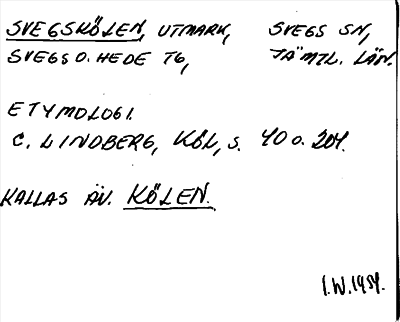 SVEGSKÖLEN, UTMARK, SVEGS SN,
SVEGS O. HEDE TG, JÄMTL. LÄN.
ETYMOLOGI.
C. LINDBERG, KÖL, S. 40 O. 204.
KALLAS ÄV. KÖLEN.
I.W.1984.